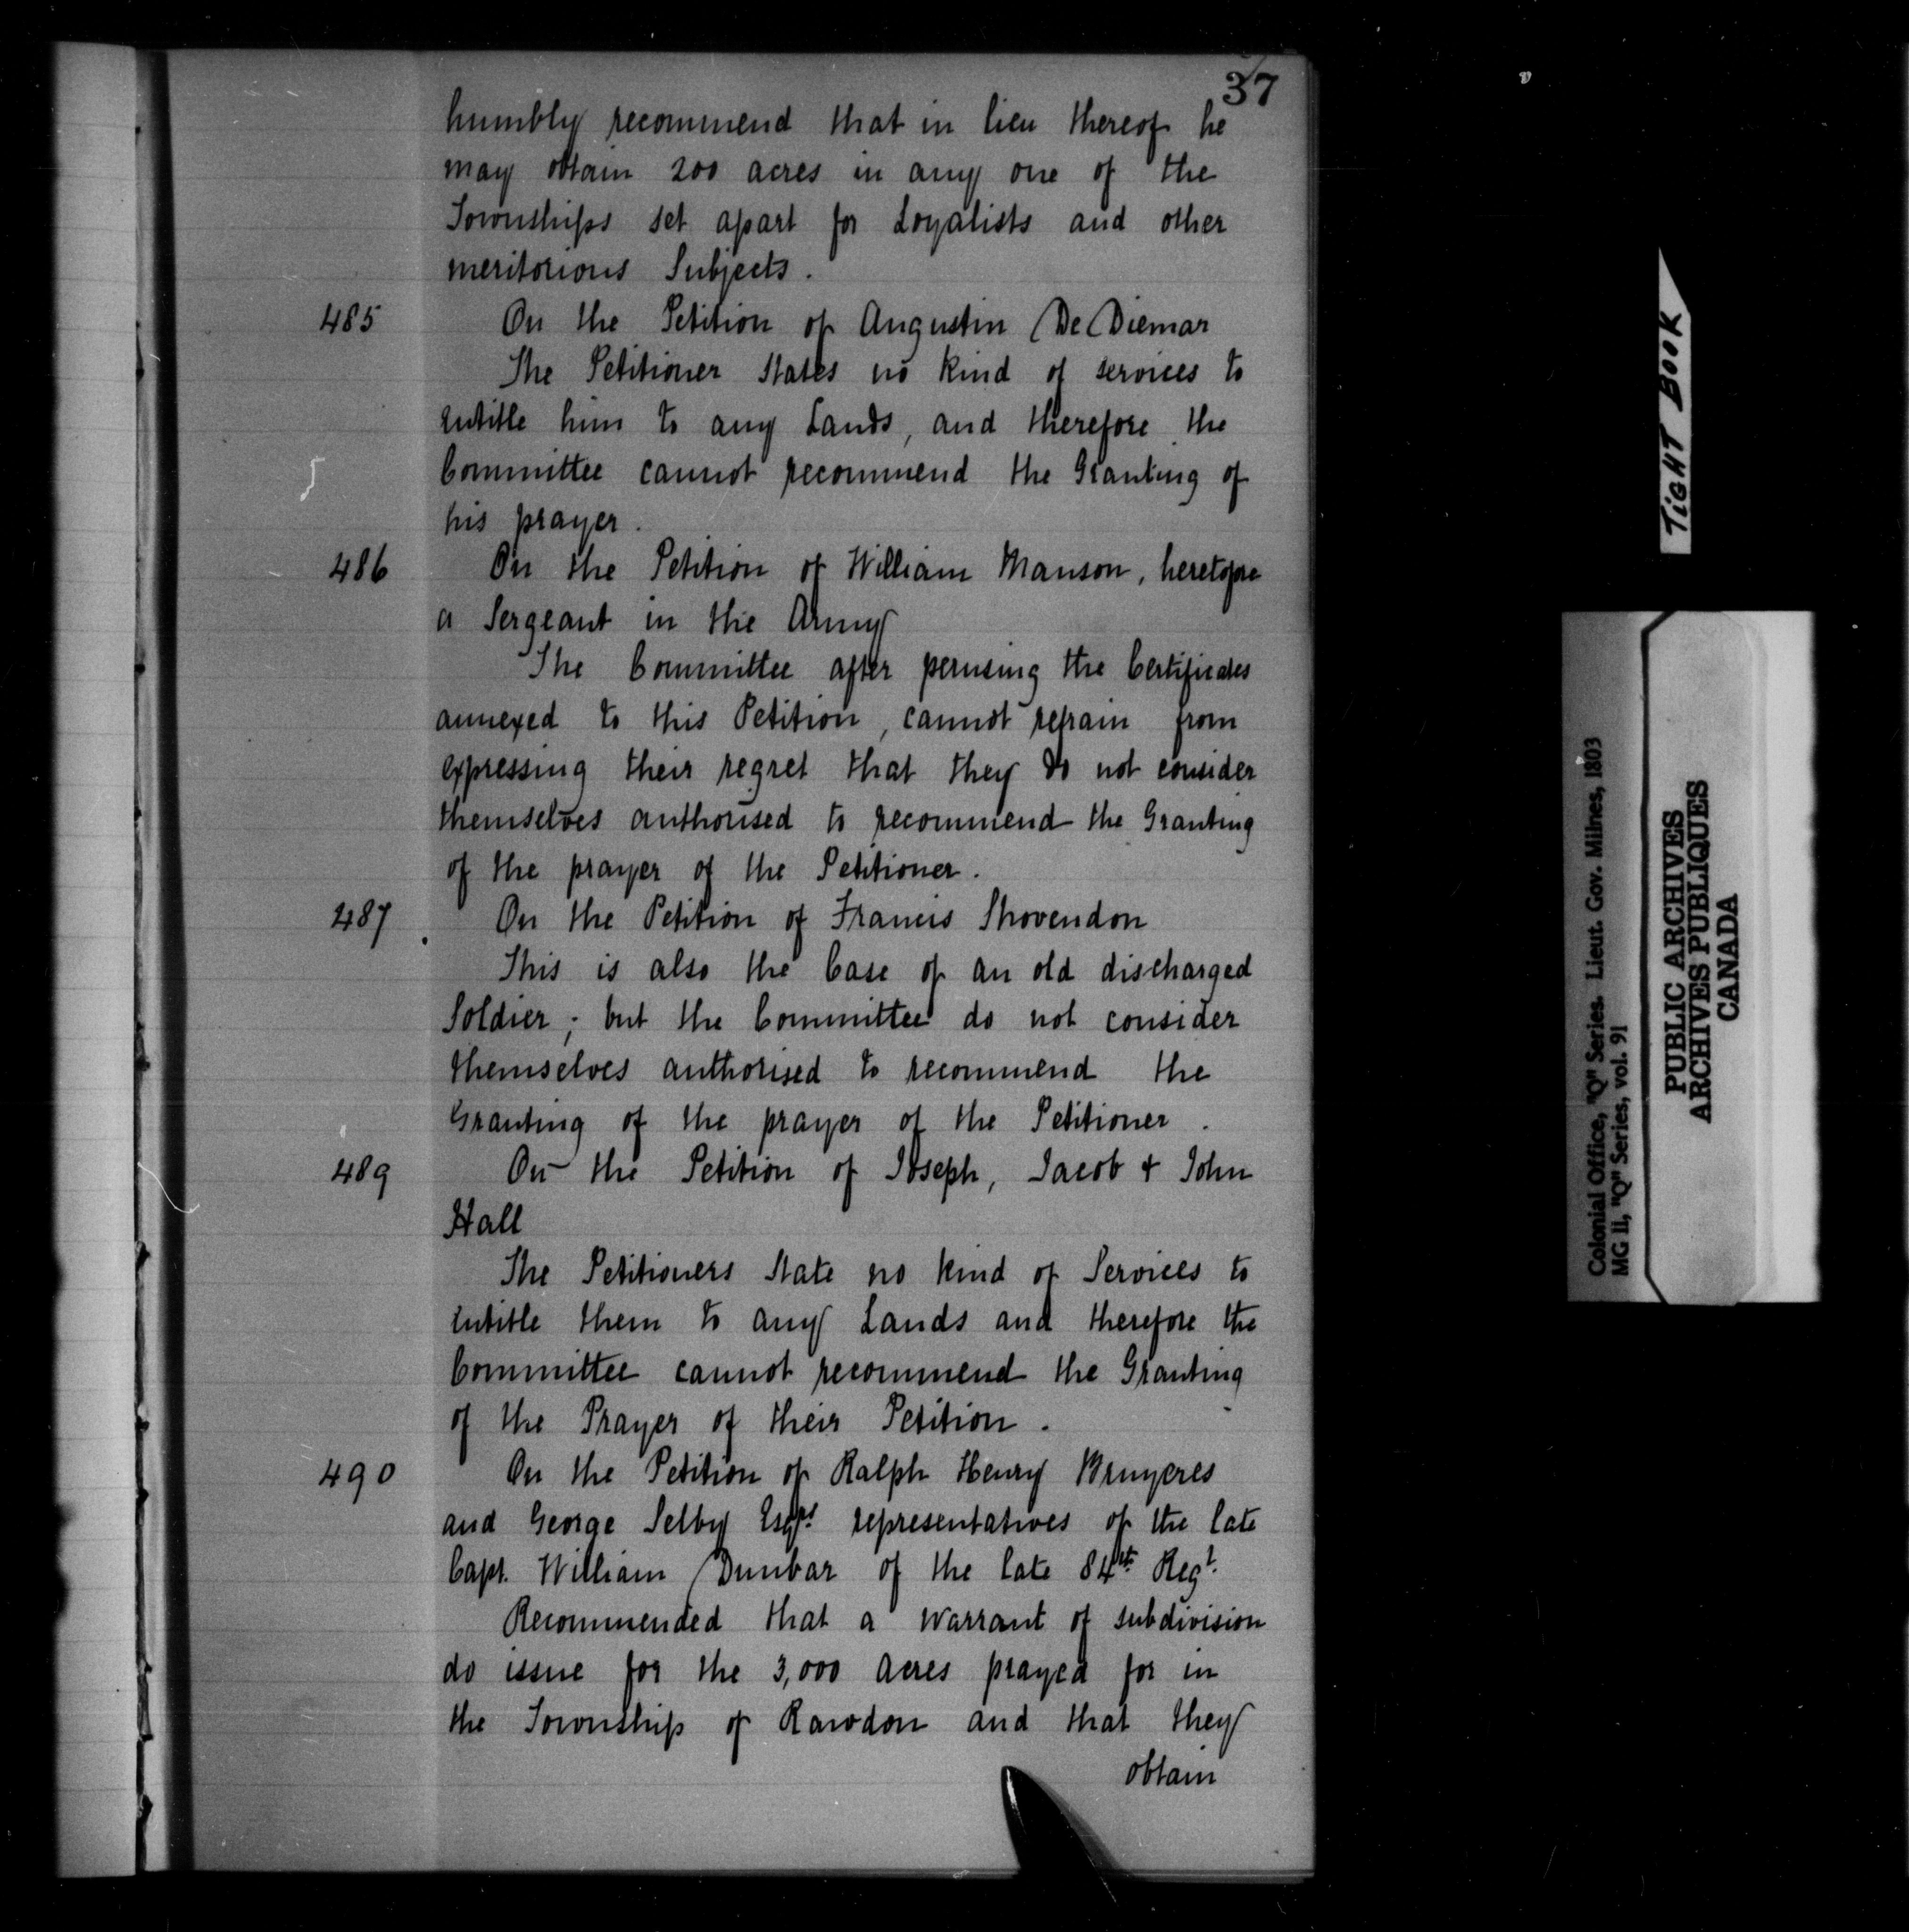 37
humbly recommend that in lieu thereof he
may obtain 200 acres in any one of the
Townships set apart for Loyalists and other
meritorious Subjects.
485 On the Petition of Augustin De Diemar
The Petitioner States no kind of services to
entitle him to any Lands, and therefore the
Committee cannot recommend the Granting of
his prayer.
486 On the Petition of William Manson, heretofore
a Sergeant in the Army
The Committee after perusing the Certificates
annexed to this Petition, cannot refrain from
expressing their regret that they do not consider
themselves authorised to recommend the Granting
of the prayer of the Petitioner.
487 On the Petition of Francis Shovendon
This is also the Case of an old discharged
Soldier; but the Committee do not consider
themselves authorised to recommend the
Granting of the prayer of the Petitioner.
489 On the Petition of Joseph, Jacob + John
Hall
The Petitioners State no kind of Services to
entitle them to any Lands and therefore the
Committee cannot recommend the Granting
of the Prayer of their Petition.
490 On the Petition of Ralph Henry Bruyeres
and George Selby Esqrs representatives of the late
Capt. William Dunbar of the late 84th Regt.
Recommended that a Warrant of subdivision
do issue for the 3,000 Acres prayed for in
the Township of Rawdon and that they
obtain
TIGHT BOOK
Colonial Office, "Q" Series. Lieut. Gov. Milnes, 1803
MG 11, "Q" Series, vol. 91
PUBLIC ARCHIVES
ARCHIVES PUBLIQUES
CANADA